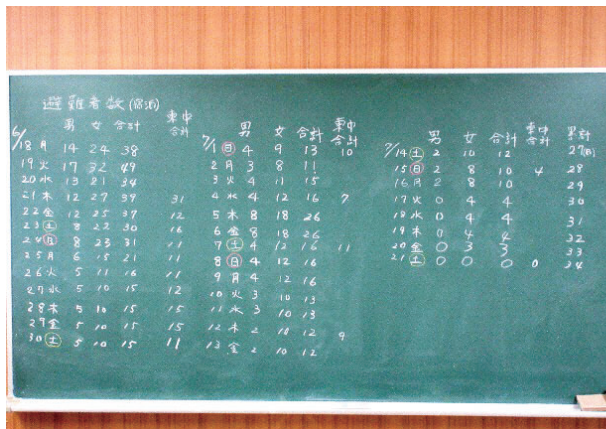 避難者数(宿泊)
男 女 合計 東中合計
6/18 月 14 24 38
19 火 17 32 49
20 水 13 21 34
21 木 12 27 39 31
22 金 12 25 37 12
23 土 8 22 30 16
24 日 8 23 31 11
25 月 6 15 21 11
26 火 5 11 16 11
27 水 5 10 15 12
28 木 5 10 15 15
29 金 5 10 15 15
30 土 5 10 15 11
男 女 合計 東中合計
7/1 日 4 9 13 10
2 月 3 8 11
3 火 4 11 15
4 水 4 12 16 7
5 木 8 18 26
6 金 8 18 26
7 土 4 12 16 11
8 日 4 12 16
9 月 4 12 16
10 火 3 10 13
11 水 3 10 13
12 木 2 10 12 9
13 金 2 10 12
男 女 合計 東中合計 累計
7/14 土 2 10 12 27
15 日 2 8 10 4 28
16 月 2 8 10 29
17 火 0 4 4 30
18 水 0 4 4 31
19 木 0 4 4 32
20 金 0 3 3 33
21 土 0 0 0 0 34